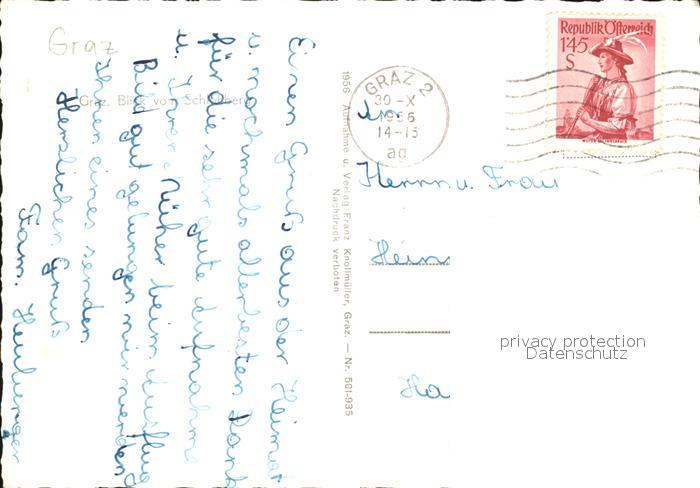 Graz
Graz. Blick vom Schloßberg
Einen Gruß aus der Heimat
u. nochmals allerbesten Dank
für die sehr gute Aufnahme
u. Ihrer Mühen beim Ausflug
Bild gut gelungen wir werden
Ihnen eines senden
Herzlichen Gruß
Fam.
1956 Aufnahme u. Verlag Franz Knollmüller, Graz. — Nr. 501-935
Nachdruck verboten
GRAZ 2
30-X
1956
14-15
Republik Österreich
1'45
S
An
Herrn u. Frau
Hein
Ha
privacy protection
Datenschutz